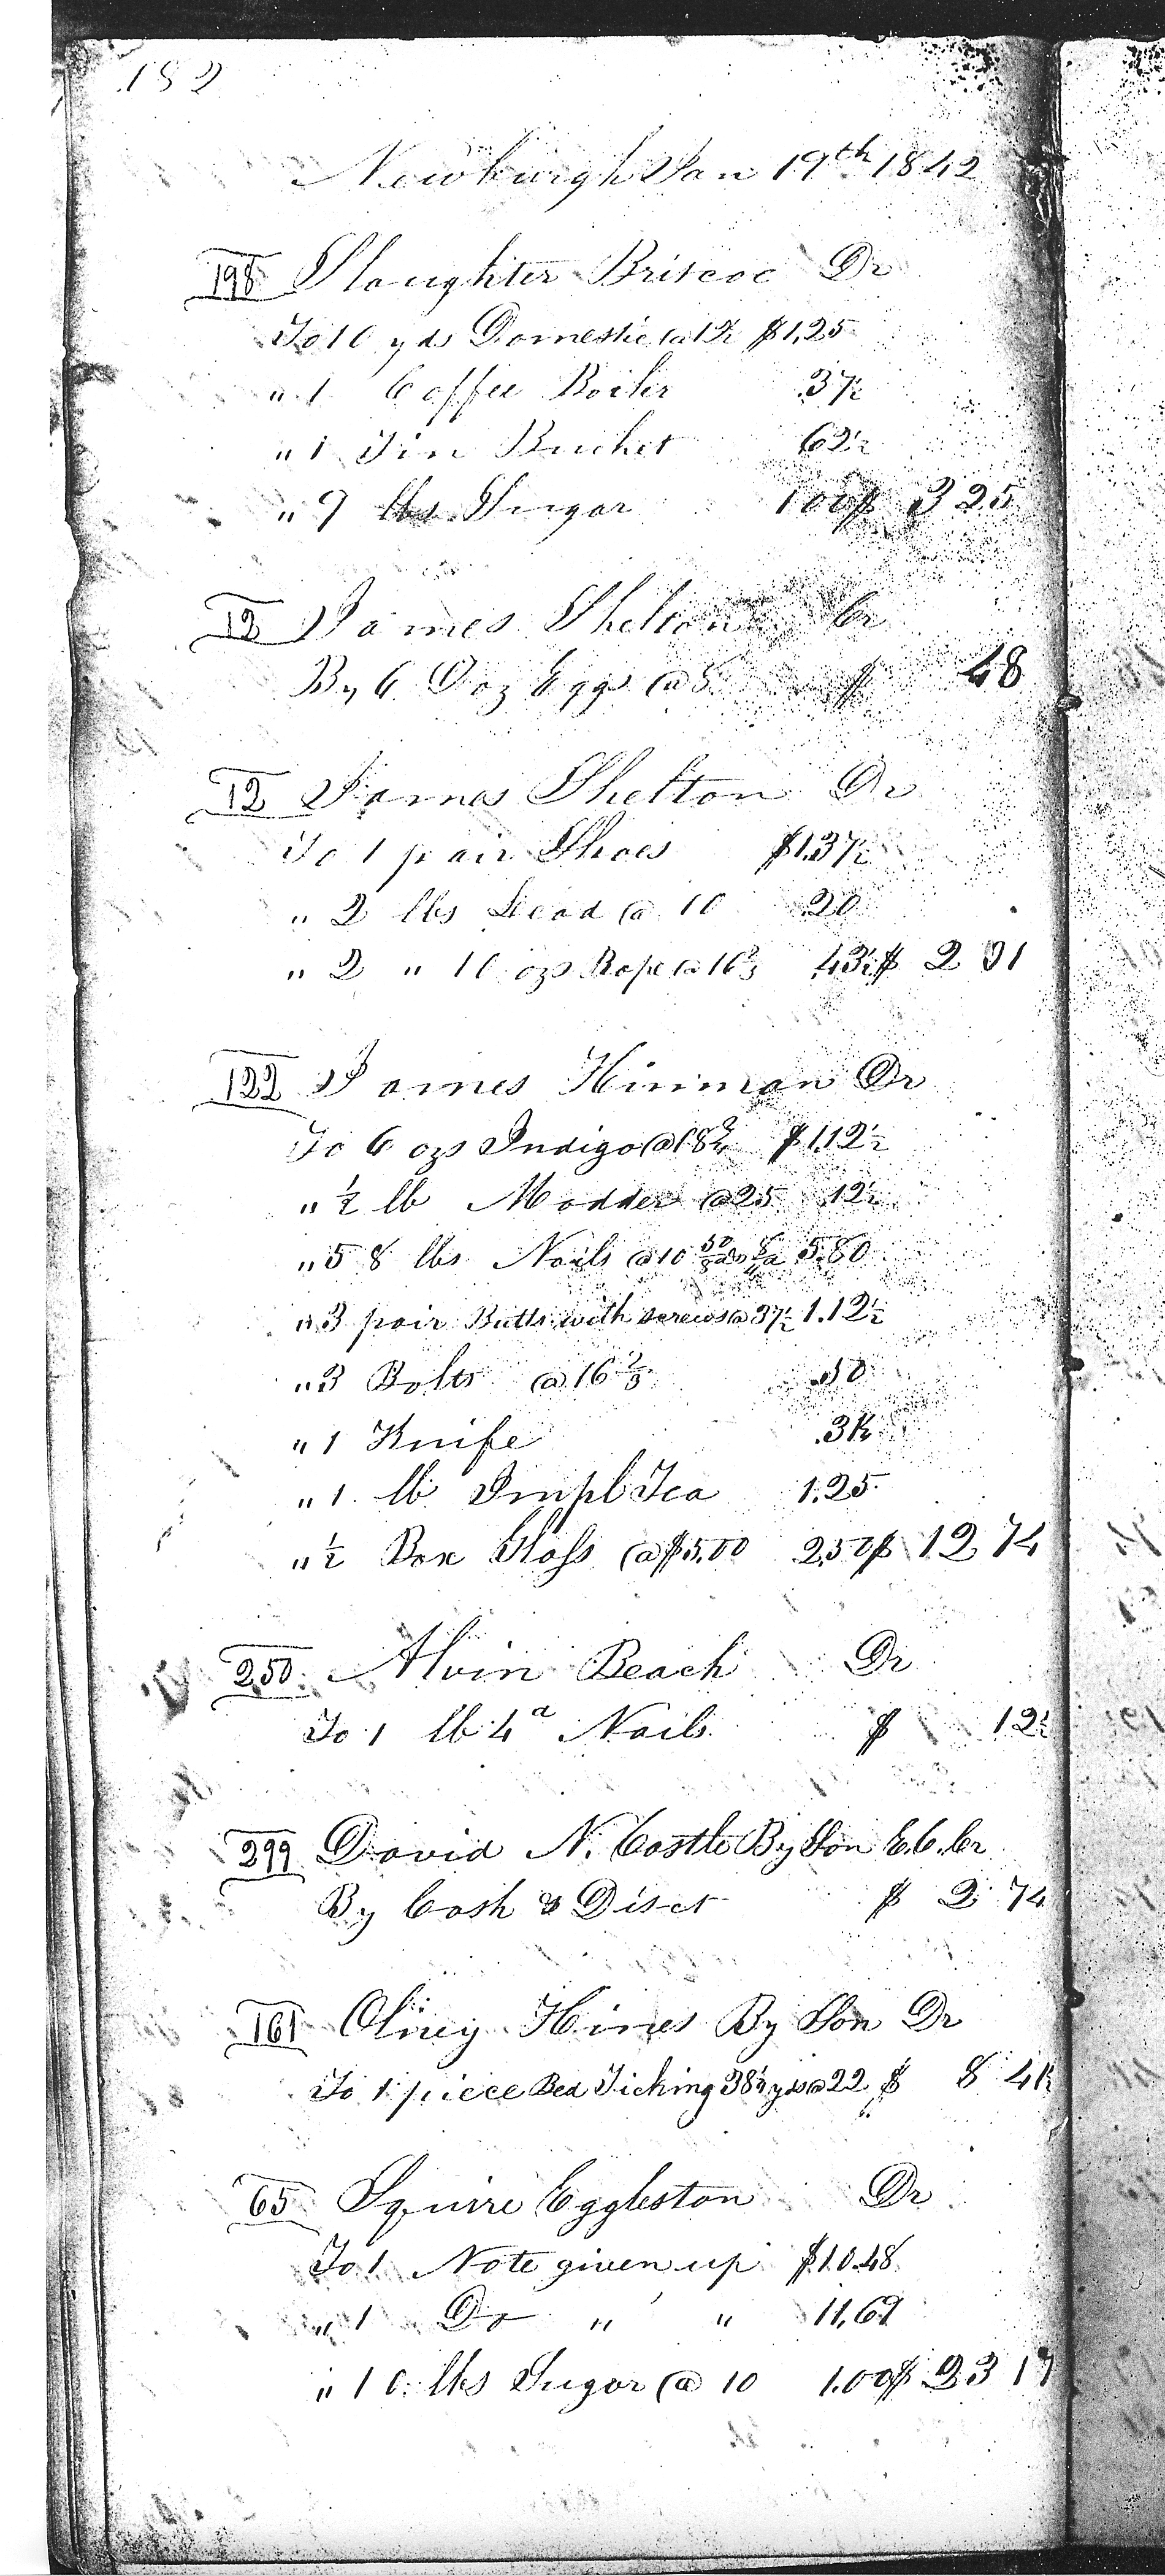 182
Newburgh Jan 19th 1842
198 Slaughter Briscoe Dr
To 10 yds Domestic @ 12½ $1,25
" 1 Coffee Boiler .37½
" 1 Tin Bucket 62½
" 9 lbs Sugar 100 $ 3 25
12 James Shelton Cr
By 6 Doz Eggs @ 8 $ 48
12 James Shelton Dr
To 1 pair Shoes $1.37½
" 2 lbs Lead @ 10 .20
" 2 " 10 ozs Rope @ 16⅔ .43½ $ 2 01
122 James Hinman Dr
To 6 ozs Indigo @ 18¾ $1.12½
" ½ lb Madder @ 25 .12½
" 58 lbs Nails @ 10 5.80
" 3 pair Butts with screws @ 37½ 1.12½
" 3 Bolts @ 16⅔ .50
" 1 Knife .31¼
" 1 lb Impl Tea 1.25
" ½ Box Glass @ $5.00 2.50 $ 12 74
250 Alvin Beach Dr
To 1 lb 4d Nails $ 12½
299 David N. Castle By Son E.C. Cr
By Cash & Disct $ 2 74
161 Olney Hines By Son Dr
To 1 piece Bed Ticking 38¼ yds @ 22 $ 8 41½
65 Squire Eggleston Dr
To 1 Note given up $10.48
" 1 Do " " 11.69
" 10 lbs Sugar @ 10 1.00 $ 23 17